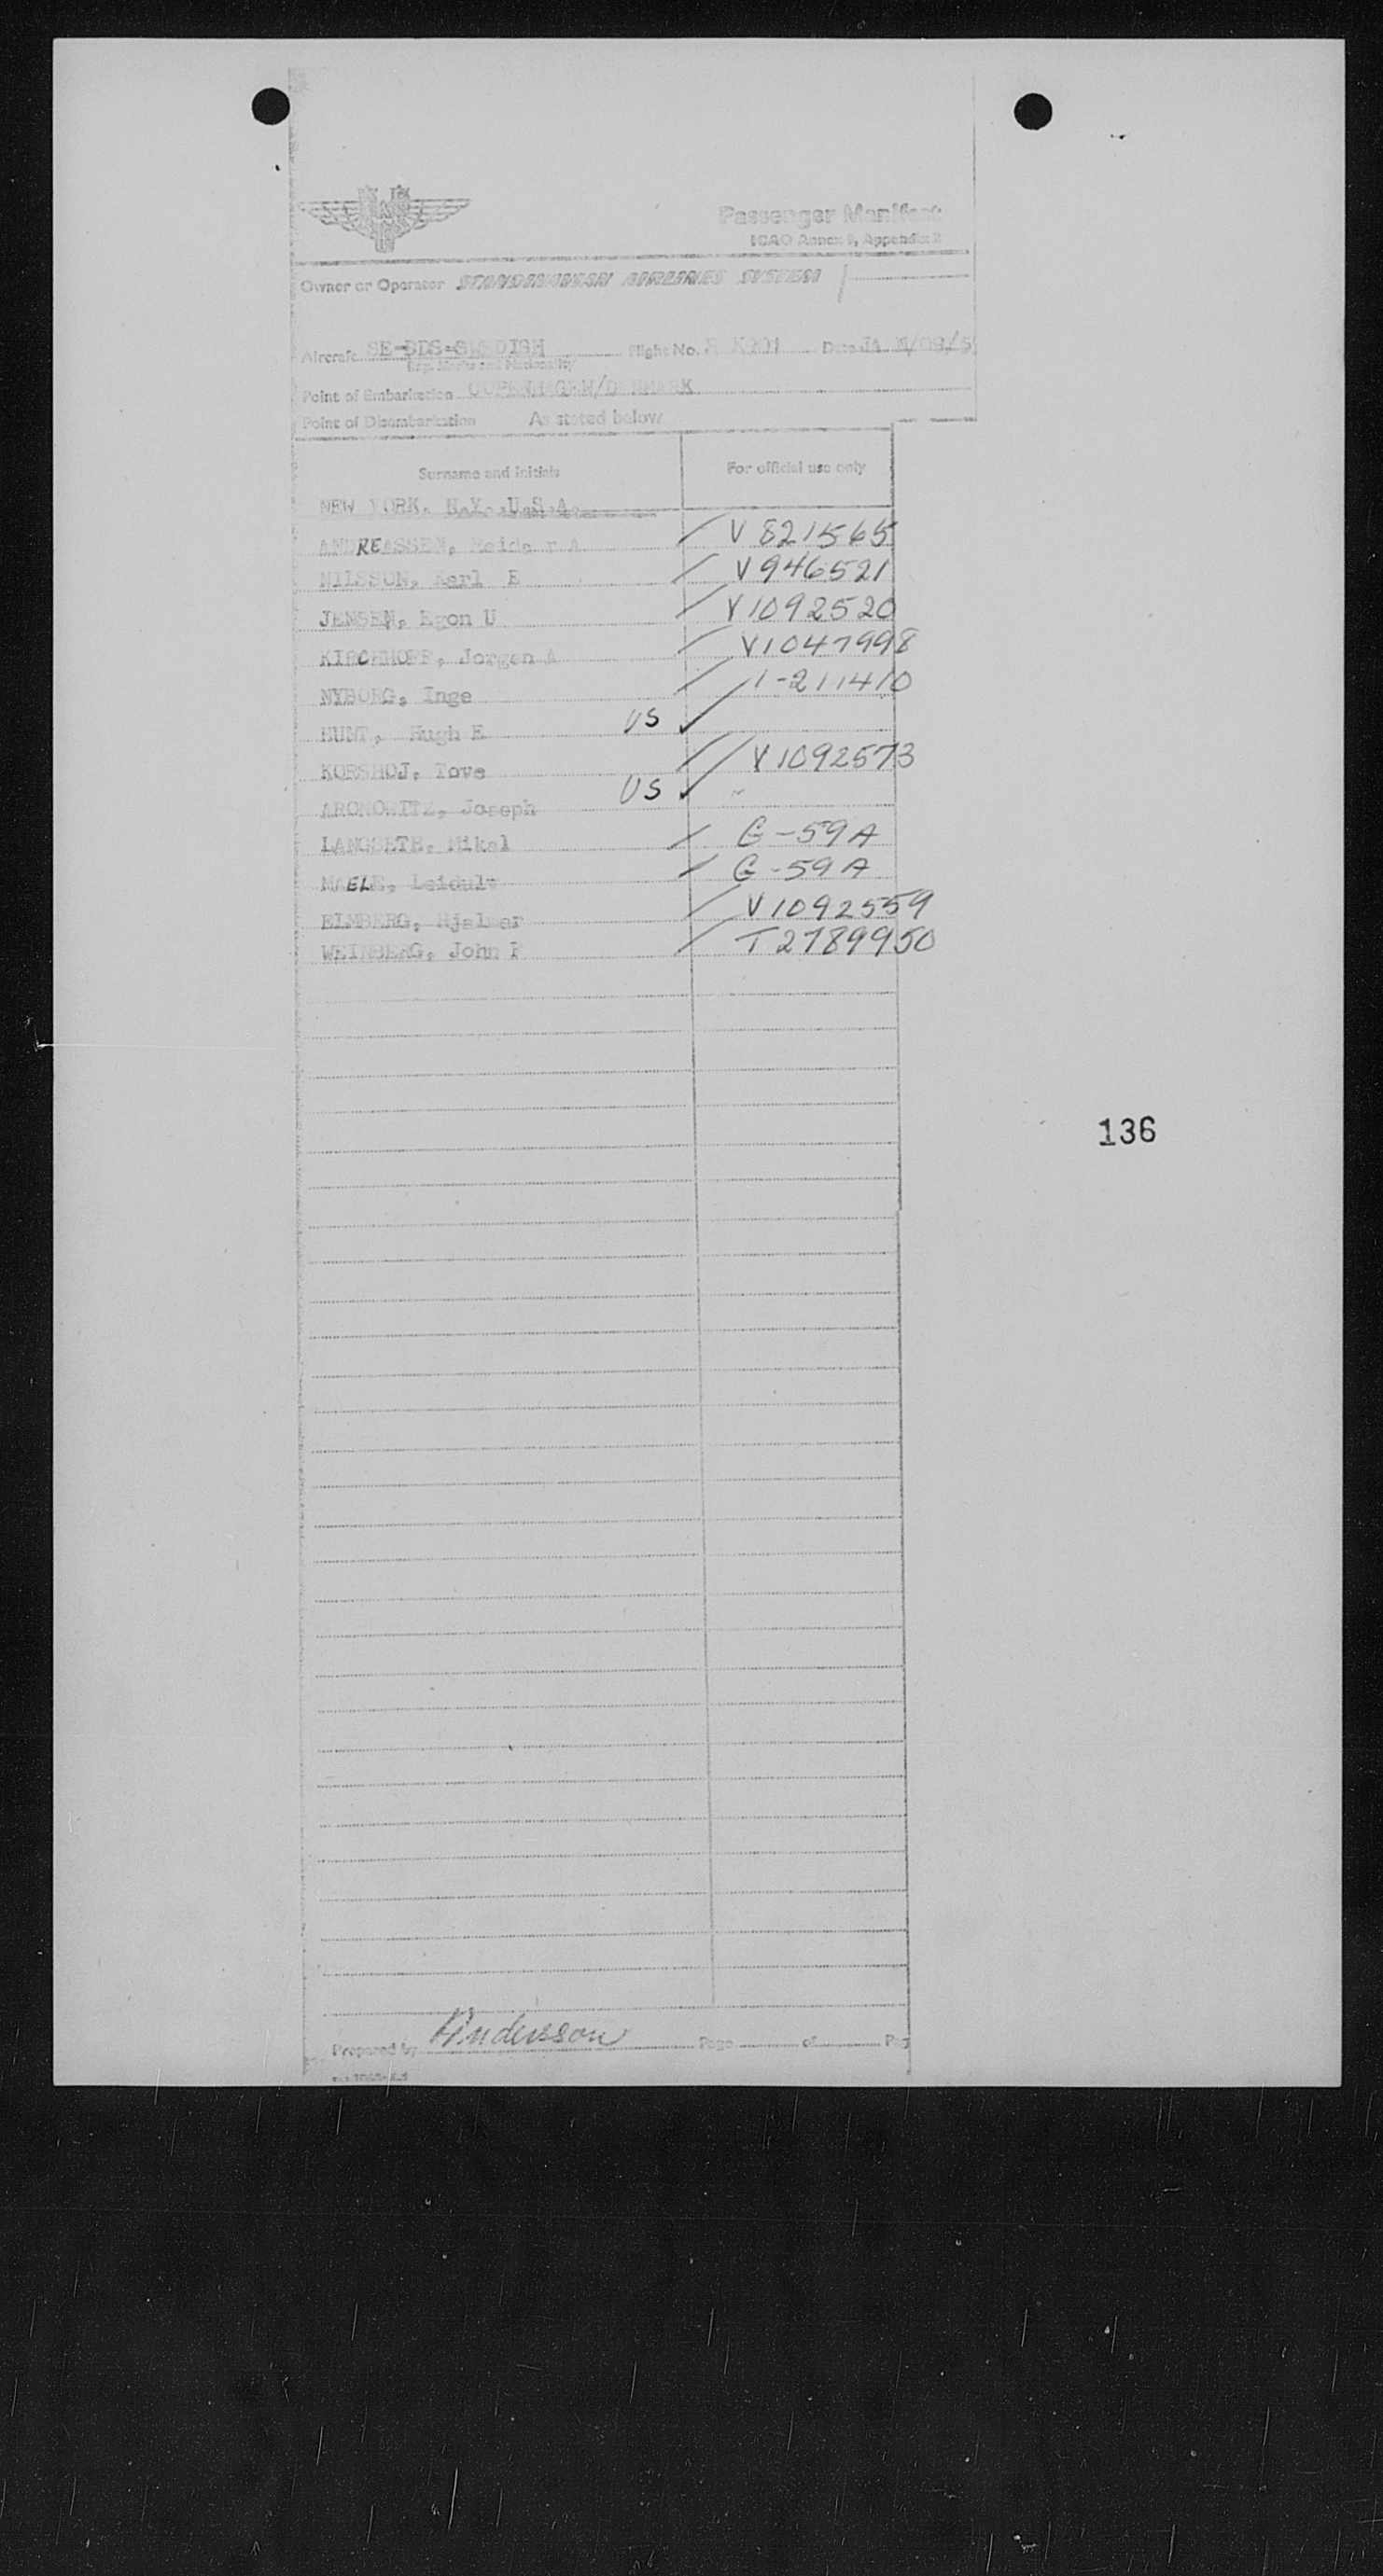 Passenger Manifest
ICAO Annex 9, Appendix
Owner or Operator SCANDINAVIAN AIRLINES SYSTEM
Aircraft SE-BDS-SWEDISH Flight No. Date
Reg. Marks and Nationality
Point of Embarkation COPENHAGEN/DENMARK
Point of Disembarkation As stated below
Surname and Initials For official use only
NEW YORK, N.Y. U.S.A.
ANDREASSEN, A V 821565
NILSSON, Karl E V 946521
JENSEN, Egon U V 1092520
KIRCHHOFF, Jorgen A V 1047998
NYBORG, Inge 1-211410
HUNT, Hugh E US
KORSHOJ, Tove V 1092573
Joseph US
LANGSETH, Mikal G-59A
G-59A
ELMBERG, Hjalmar V 1092559
WEINBERG, John T 2789950
136
Prepared by Andersson Page of Pag